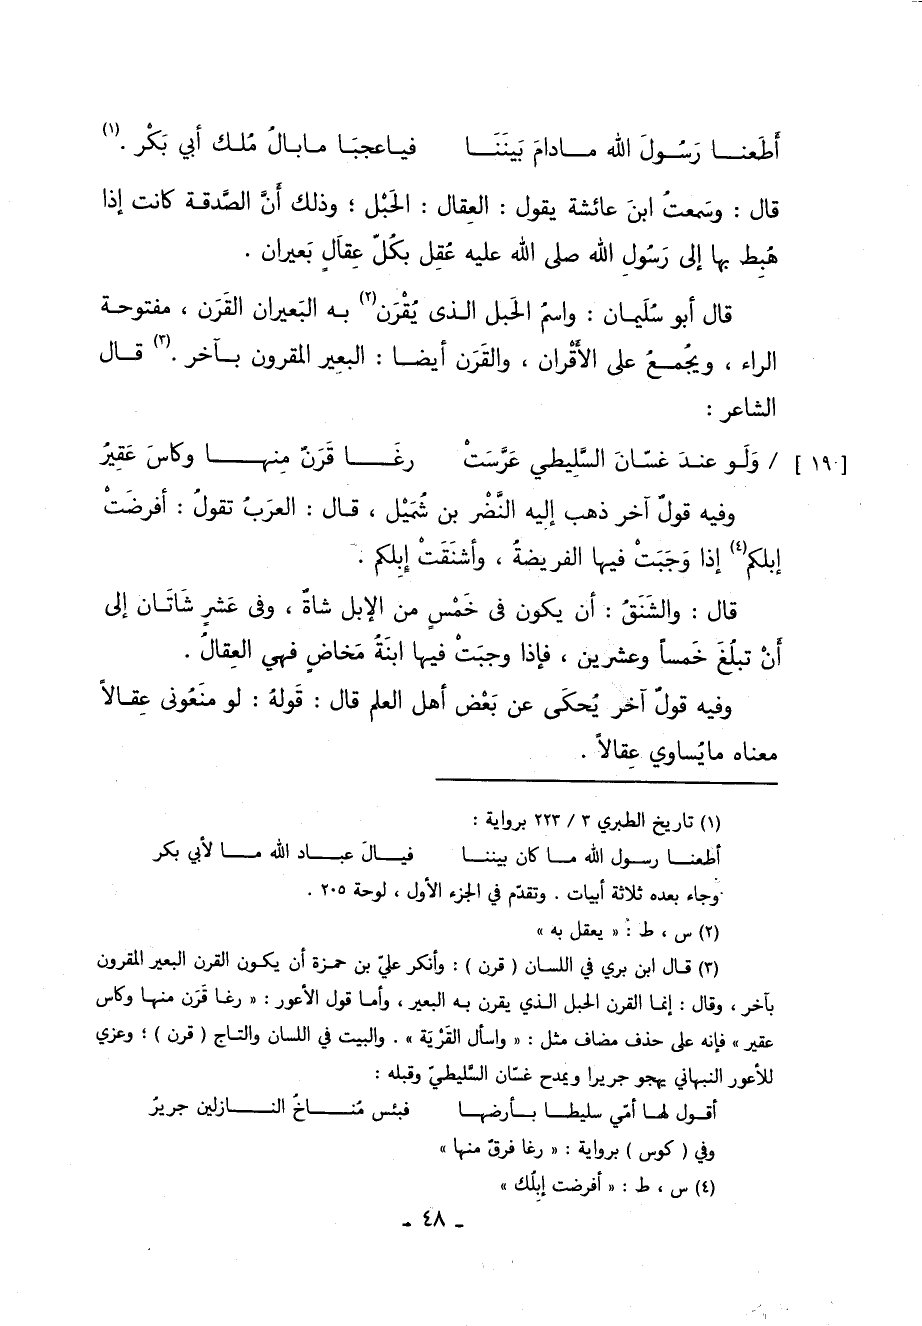 أَطَعنـا رَسُـولَ الله مـادامَ بَينَنَـا فياعجبَـا مـابالُ مُلـك أبي بَكْر .(١)
قال : وسَمعتُ ابنَ عائشة يقول : العقال : الحَبْل ؛ وذلك أَنَّ الصَّدقـة كانت إذا
هُبِط بها إلى رَسُولِ الله صلى الله عليه عُقِل بكُلّ عِقالٍ بَعيران .
قال أبو سُلَيمان : واسمُ الحَبل الـذى يُقْرَن(٢) بـه البَعيران القَرَن ، مفتوحـة
الراء ، ويجُمـعُ على الأَقْران ، والقَرَن أيضـا : البعير المقرون بـآخر .(٣) قـال
الشاعر :
[ ١٩٠ ] / وَلَـو عنـدَ غسّانَ السَّليطي عَرَّستْ رغَـا قَرَنٌ مِنهـا وكاسَ عَقِيرُ
وفيه قولٌ آخر ذهب إليه النَّضْر بن شُمَيْل ، قـال : العربُ تقولُ : أفرضَتْ
إبلكم(٤) إذا وَجَبَتْ فيها الفريضةُ ، وأشنَقَتْ إِبلكم .
قال : والشَنَقُ : أن يكون فى خَمْسٍ من الإبل شاةٌ ، وفى عَشرٍ شَاتَـان إلى
أَنْ تبلُغَ خَمساً وعشرين ، فإذا وجبَتْ فيهـا ابنَةُ مَخاضٍ فهي العِقالُ .
وفيه قولٌ آخر يُحكَى عن بَعْض أهل العلم قال : قَولهُ : لو منَعُونى عِقـالاً
معناه مايُساوي عِقالاً .
(١) تاريخ الطبري ٣ / ٢٢٣ برواية :
أطعنـا رسـول الله مـا كان بيننـا فيـالَ عبـاد الله مـا لأبي بكر
وجاء بعده ثلاثة أبيات . وتقدّم في الجزء الأول ، لوحة ٢٠٥ .
(٢) س ، ط : « يعقل به »
(٣) قـال ابن بري في اللسان ( قرن ) : وأنكر عليّ بن حمزة أن يكون القرن البعير المقرون
بآخر ، وقال : إنما القرن الحبل الـذي يقرن بـه البعير ، وأمـا قول الأعور : « رغـا قَرَن منهـا وكاس
عقير » فإنه على حذف مضاف مثل : « واسأل القَرْيَة » . والبيت في اللسان والتـاج ( قرن ) ؛ وعزي
للأعور النبهاني يهجو جريرا ويمدح غسّان السَّليطيّ وقبله :
أقـول لهـا أمّي سليطـا بـأرضهـا فبئس مُنـاخُ النـازلين جريرُ
وفي ( كوس ) برواية : « رغا فرقٌ منها »
(٤) س ، ط : « أفرضت إبلُك »
- ٤٨ -